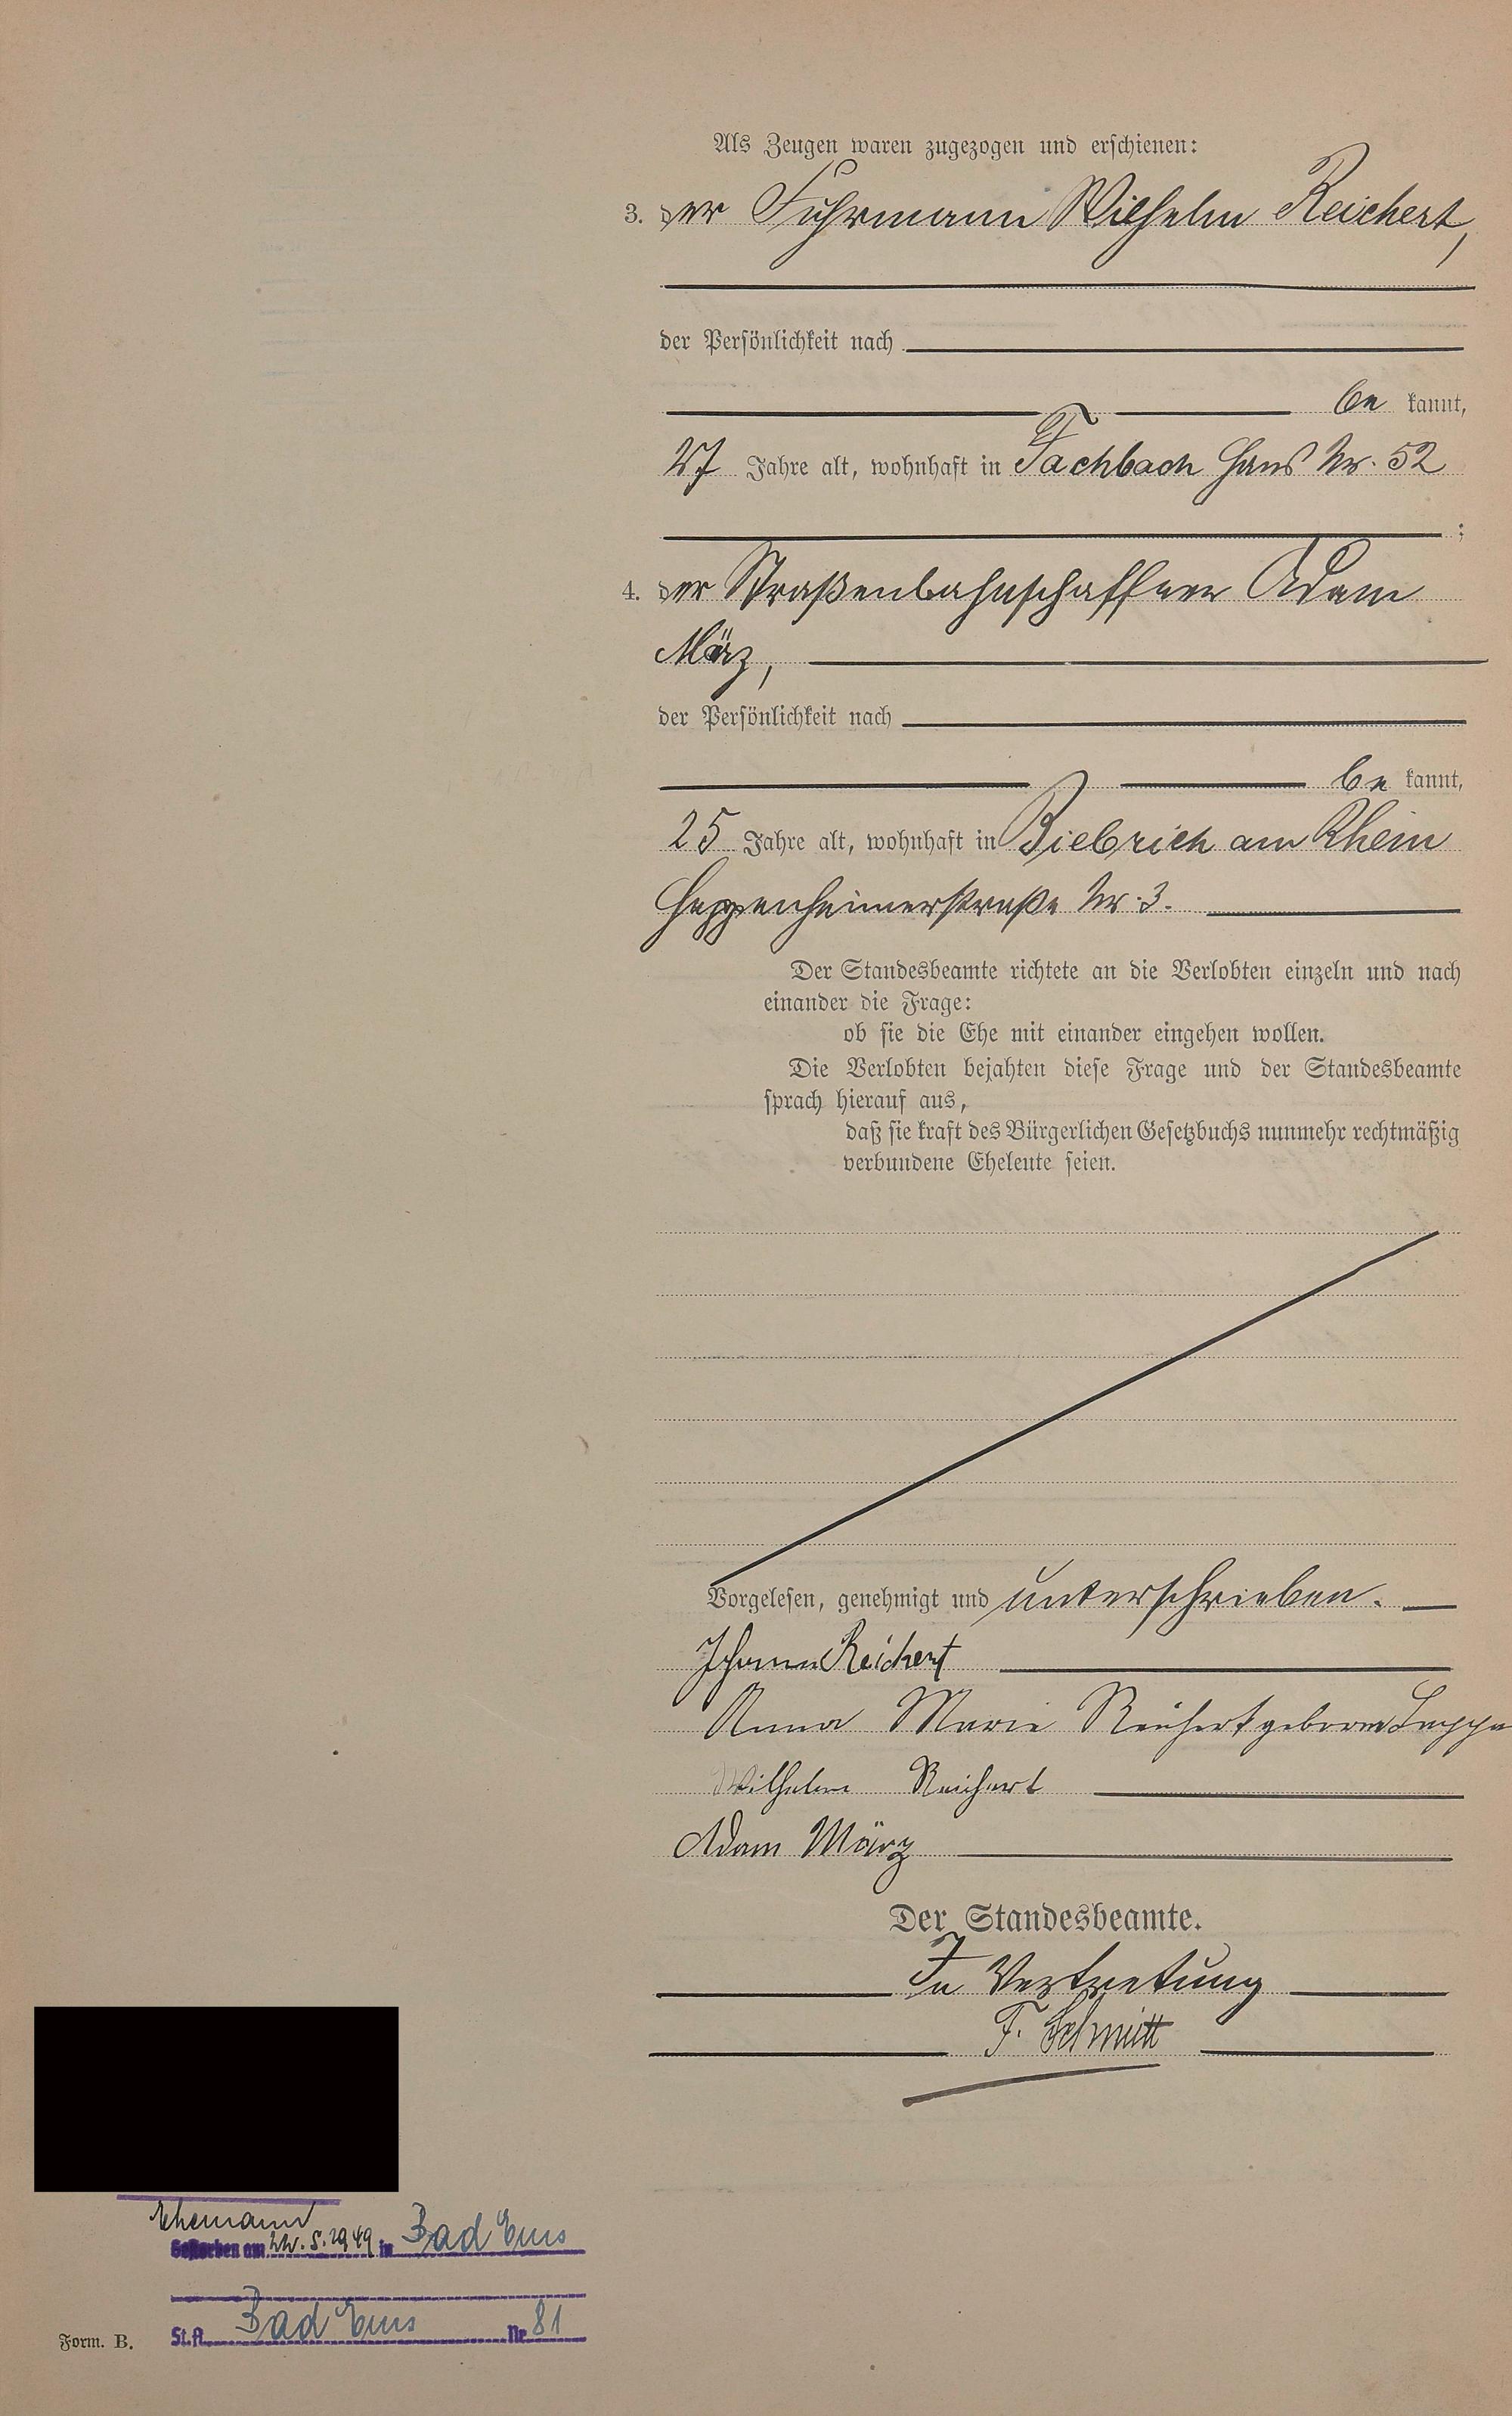 Als Zeugen waren zugezogen und erschienen:
3. der Fuhrmann Wilhelm Reichert,
der Persönlichkeit nach
be kannt,
27 Jahre alt, wohnhaft in Fachbach Haus Nr. 52
;
4. der Straßenbahnschaffner Adam
März,
der Persönlichkeit nach
be kannt,
25 Jahre alt, wohnhaft in Biebrich am Rhein
Heppenheimerstraße Nr. 3.
Der Standesbeamte richtete an die Verlobten einzeln und nach
einander die Frage:
ob sie die Ehe mit einander eingehen wollen.
Die Verlobten bejahten diese Frage und der Standesbeamte
sprach hierauf aus,
daß sie kraft des Bürgerlichen Gesetzbuchs nunmehr rechtmäßig
verbundene Eheleute seien.
Vorgelesen, genehmigt und unterschrieben.
Johann Reichert
Anna Marie Reichert geborne
Wilhelm Reichert
Adam März
Der Standesbeamte.
In Vertretung
F. Schmitt
Ehemann
Gestorben am 22.5.1949 in Bad Ems
St.A. Bad Ems Nr. 81
Form. B.